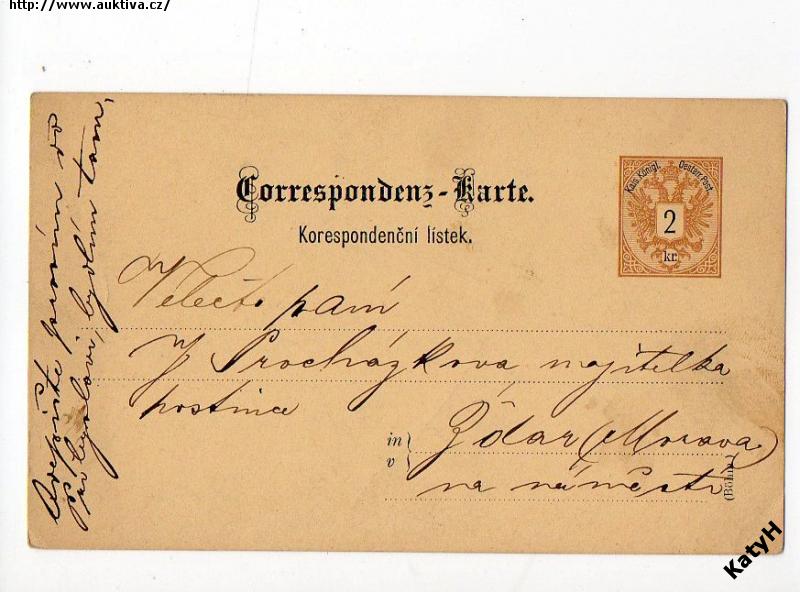 http://www.auktiva.cz/
Correspondenz-Karte.
Korespondenční lístek.
Kais. Königl. Oesterr. Post.
2
kr.
Velect. paní
Procházkova majitelka
hostince
in
v
Ždár (Morava)
na náměstí
(Böhm.)
prosím do
bydlím tam.
KatyH